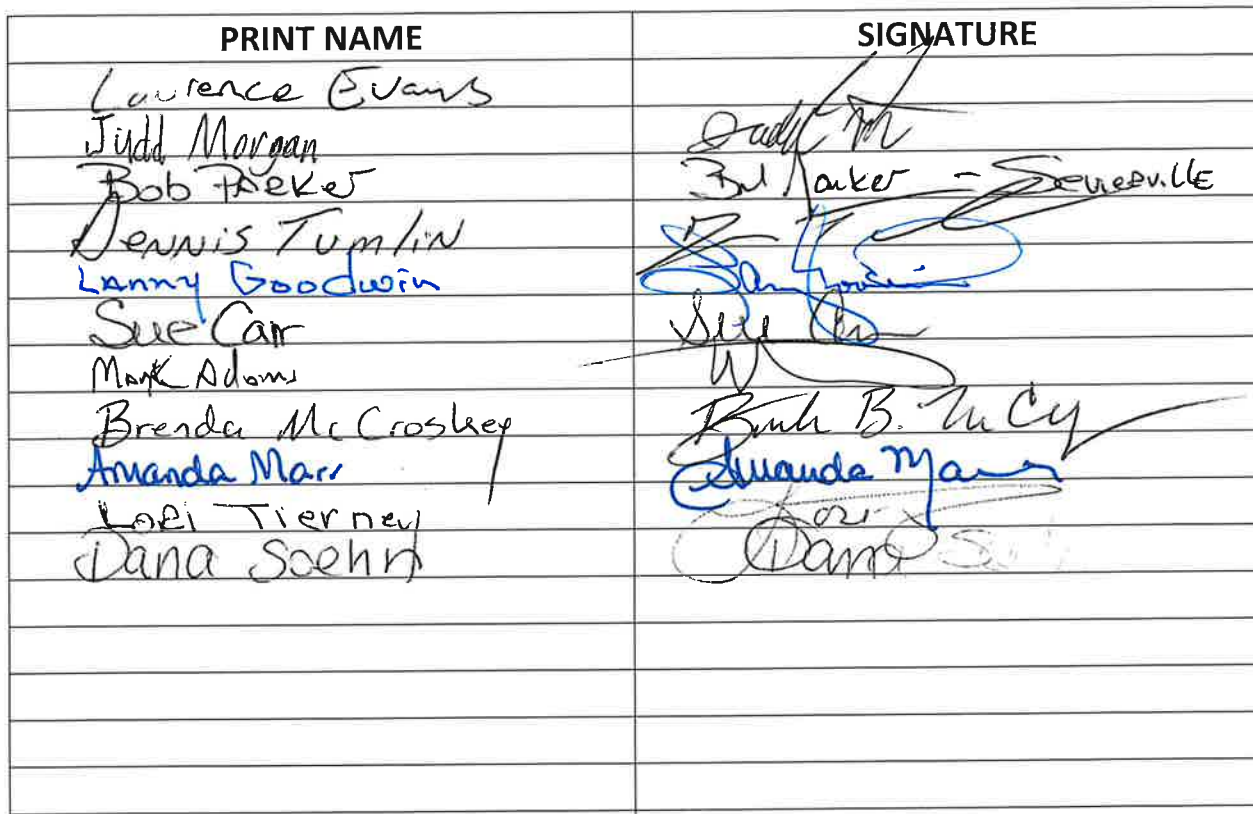 PRINT NAME SIGNATURE
Laurence Evans
Judd Morgan Judd
Bob Parker Bob Parker - Sevierville
Dennis Tumlin
Lanny Goodwin
Sue Carr Sue
Mark Adams
Brenda McCroskey B. McCy
Amanda Marr Amanda Marr
Lori Tierney Lori
Dana Soehn Dana